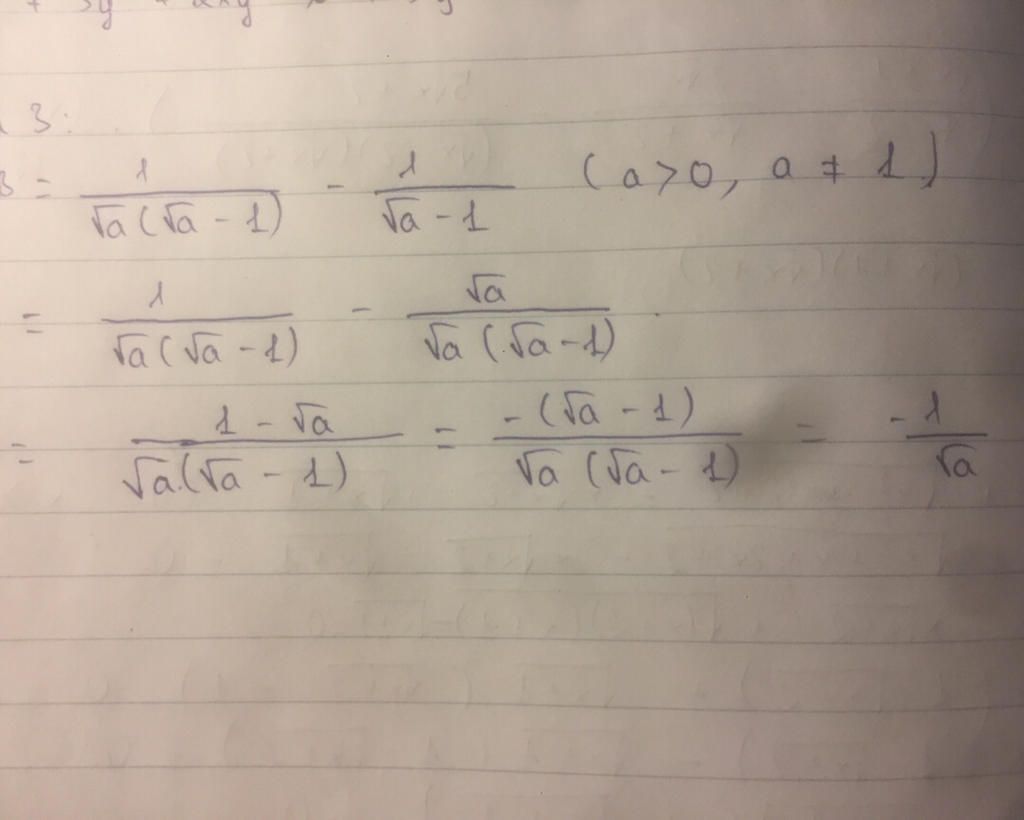 3:
B = 1/(√a(√a - 1)) - 1/(√a - 1) (a>0, a ≠ 1)
= 1/(√a(√a - 1)) - √a/(√a(√a - 1))
= (1 - √a)/(√a.(√a - 1)) = -(√a - 1)/(√a(√a - 1)) = -1/√a